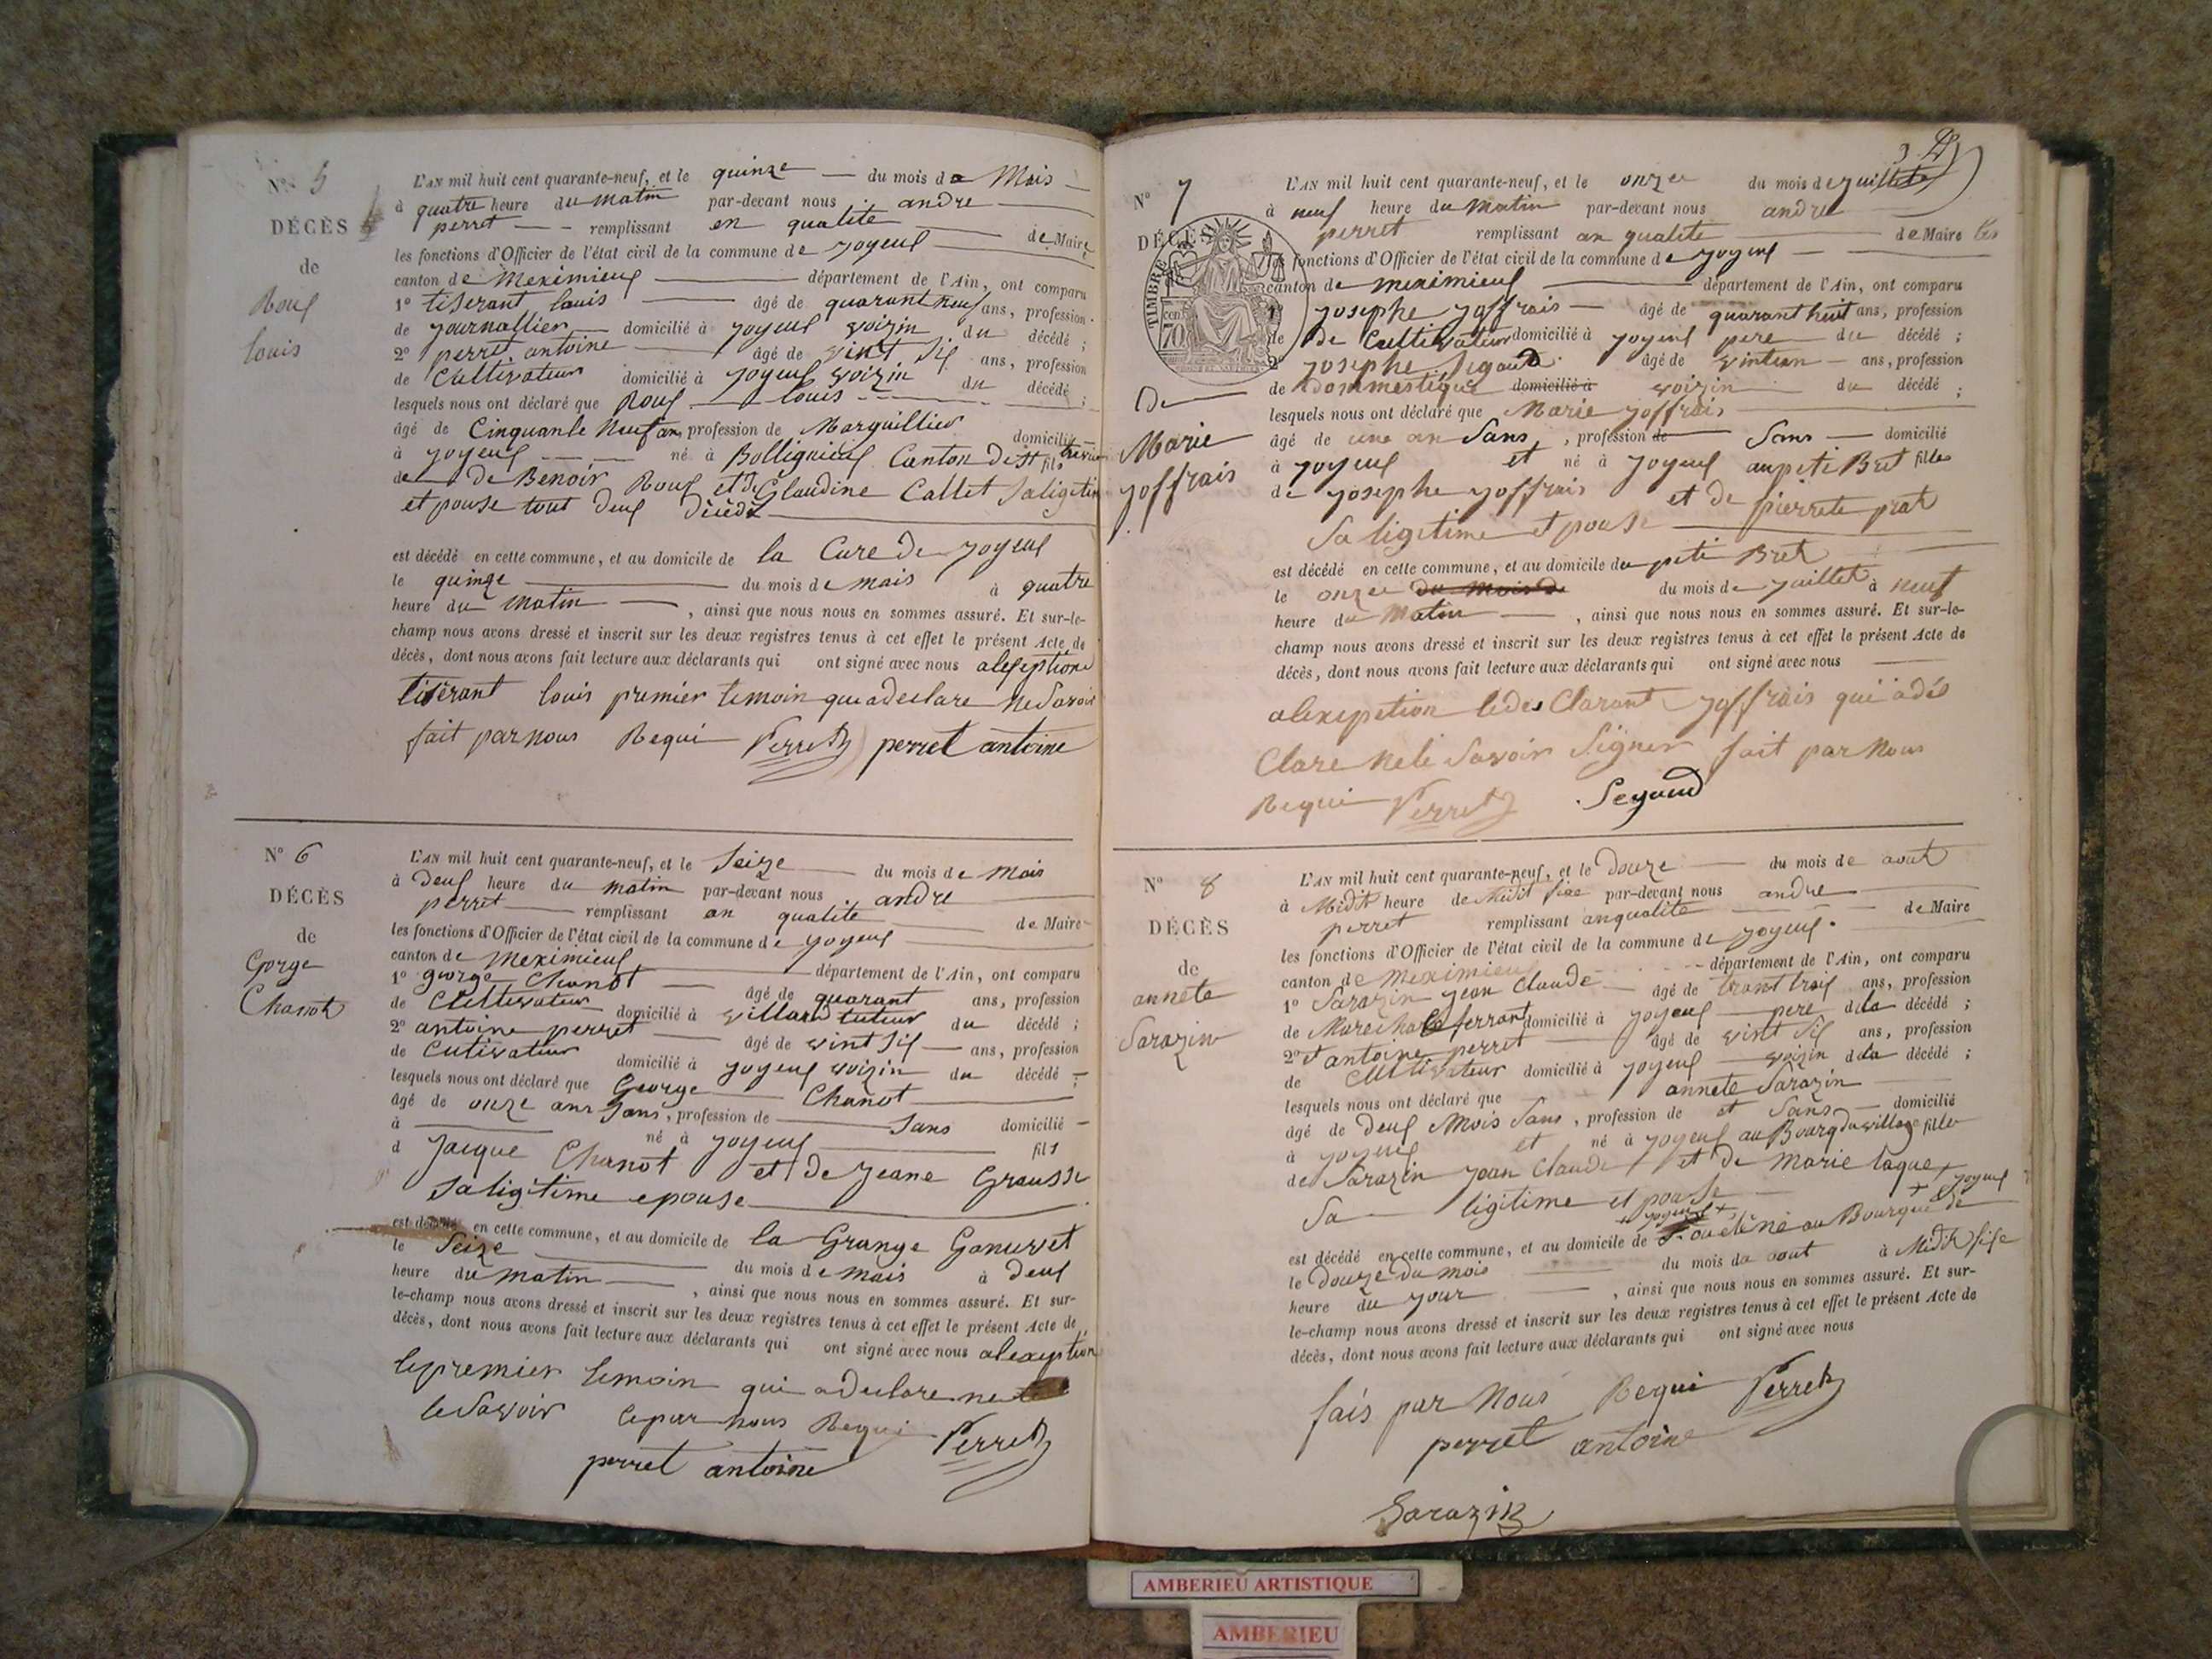 N° 5
DÉCÈS
de
Rouf
louis
L'AN mil huit cent quarante-neuf, et le quinze du mois de Mais
à quatre heure du matin par-devant nous andre
perret remplissant en qualite de Maire
les fonctions d'Officier de l'état civil de la commune de yoyeuf
canton de Meximieuf département de l'Ain, ont comparu
1° tiserant louis âgé de quarant neuf ans, profession
de yournallier domicilié à yoyeuf voizin du décédé ;
2° perret antoine âgé de vint sif ans, profession
de Cultivateur domicilié à yoyeuf voizin du décédé ;
lesquels nous ont déclaré que Rouf louis
âgé de Cinquante Neuf an, profession de Marguillier domicilié
à yoyeuf né à Bollignieuf Canton de st trevier fils
de de Benoir Rouf et de Glaudine Callet Saligitim
et pouse tout deuf décédé
est décédé en cette commune, et au domicile de la Cure de yoyeuf
le quinze du mois de mais à quatre
heure du matin , ainsi que nous nous en sommes assuré. Et sur-le-
champ nous avons dressé et inscrit sur les deux registres tenus à cet effet le présent Acte de
décès, dont nous avons fait lecture aux déclarants qui ont signé avec nous alexeptione
tiserant louis premier temoin qui a declare ne Savoir
fait par nous Requi Perret perret antoine
N° 6
DÉCÈS
de
Gorge
Chanot
L'AN mil huit cent quarante-neuf, et le Seize du mois de Mais
à deuf heure du matin par-devant nous andre
perret remplissant an qualite de Maire
les fonctions d'Officier de l'état civil de la commune de yoyeuf
canton de Meximieuf département de l'Ain, ont comparu
1° george Chanot âgé de quarant ans, profession
de Cultivateur domicilié à villard tuteur du décédé ;
2° antoine perret âgé de vint sif ans, profession
de Cutivateur domicilié à yoyeuf voizin du décédé ;
lesquels nous ont déclaré que George Chanot
âgé de onze ans Sans, profession de Sans domicilié
à né à yoyeuf fils
d Jacque Chanot et de Jeane Grausse
saligitime epouse
est décédé en cette commune, et au domicile de la Grange Ganurvet
le Seize du mois de mais à deuf
heure du matin , ainsi que nous nous en sommes assuré. Et sur-
le-champ nous avons dressé et inscrit sur les deux registres tenus à cet effet le présent Acte de
décès, dont nous avons fait lecture aux déclarants qui ont signé avec nous alexeption
le premier temoin qui a declare ne
le Savoir le par nous Requi Perret
perret antoine
3
N° 7
DÉCÈS
TIMBRE
cen 70
de
Marie
yoffrais
L'AN mil huit cent quarante-neuf, et le onze du mois de yuillet
à neuf heure du Matin par-devant nous andre
perret remplissant an qualite de Maire les
fonctions d'Officier de l'état civil de la commune de yoyeuf
canton de meximieuf département de l'Ain, ont comparu
1° yosephe yoffrais âgé de quarant huit ans, profession
de de Cultivateur domicilié à yoyeuf pere du décédé ;
2° yosephe Segaud âgé de vintean ans, profession
de dommestique domicilié à voizin du décédé ;
lesquels nous ont déclaré que Marie yoffrais
âgé de une an Sans, profession de Sans domicilié
à yoyeuf et né à yoyeuf au peti Bret fille
de yosephe yoffrais et de pierrete prat
Sa ligitime et pouse
est décédé en cette commune, et au domicile du peti Bret
le onze du mois de du mois de yuillet à neuf
heure du Matin , ainsi que nous nous en sommes assuré. Et sur-le-
champ nous avons dressé et inscrit sur les deux registres tenus à cet effet le présent Acte de
décès, dont nous avons fait lecture aux déclarants qui ont signé avec nous
alexepetion ledes Clarant yoffrais qui a dés
Clare ne le Savoir Signer fait par Nous
Requi Perret Segaud
N° 8
DÉCÈS
de
annete
Sarazin
L'AN mil huit cent quarante-neuf, et le douze du mois de aout
à Midit heure de Midit par-devant nous andre
perret remplissant anqualite de Maire
les fonctions d'Officier de l'état civil de la commune de yoyeuf
canton de Meximieu département de l'Ain, ont comparu
1° Sarazin yean Claude âgé de trant troif ans, profession
de Marechal ferrant domicilié à yoyeuf pere de la décédé ;
2° et antoine perret âgé de vint sif ans, profession
de Cultivateur domicilié à yoyeuf voizin de la décédé ;
lesquels nous ont déclaré que annete Sarazin
âgé de deuf Mois Sans, profession de et Sans domicilié
à yoyeuf et né à yoyeuf au Bourg du village fille
de Sarazin yean Claude et de Marie laque
Sa ligitime et pouse + yoyeuf
est décédé en cette commune, et au domicile de au Bourgue de
le douze du mois du mois de aout à Midit
heure du your , ainsi que nous nous en sommes assuré. Et sur-
le-champ nous avons dressé et inscrit sur les deux registres tenus à cet effet le présent Acte de
décès, dont nous avons fait lecture aux déclarants qui ont signé avec nous
fais par Nous Requi Perret
perret antoine
Sarazin
AMBERIEU ARTISTIQUE
AMBERIEU